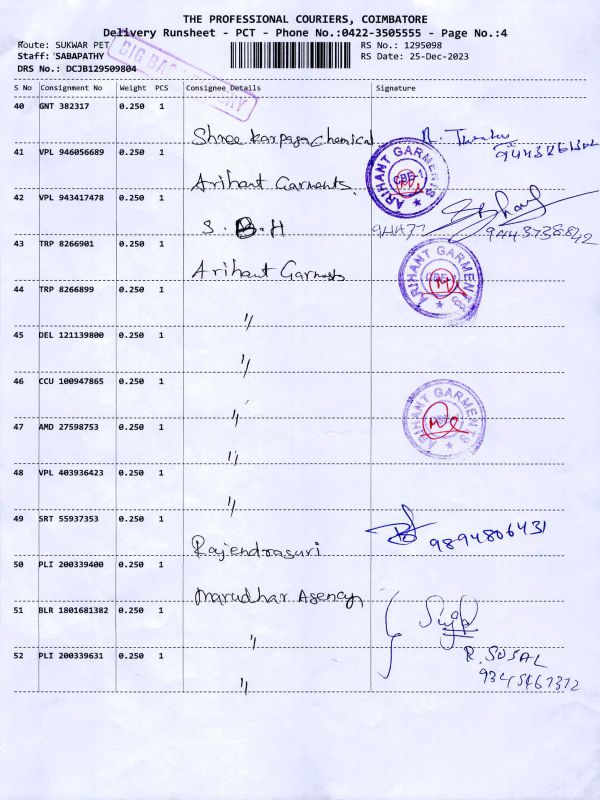 THE PROFESSIONAL COURIERS, COIMBATORE
Delivery Runsheet - PCT - Phone No.:0422-3505555 - Page No.:4
Route: SUKWAR PET RS No.: 1295098
Staff: SABAPATHY RS Date: 25-Dec-2023
DRS No.: DCJB129509804
BIG BAZAAR
S No Consignment No Weight PCS Consignee Details Signature
40 GNT 382317 0.250 1
Shree Karpaga Chemical
41 VPL 946056689 0.250 1
Arihant Garments.
ARIHANT GARMENTS
42 VPL 943417478 0.250 1
S. B. H
9443738842
43 TRP 8266901 0.250 1
Arihant Garments
ARIHANT GARMENTS
44 TRP 8266899 0.250 1
"
45 DEL 121139800 0.250 1
"
46 CCU 100947865 0.250 1
"
ARIHANT GARMENTS
47 AMD 27598753 0.250 1
"
48 VPL 403936423 0.250 1
"
49 SRT 55937353 0.250 1
Rajendrasuri 9894806431
50 PLI 200339400 0.250 1
Marudhar Agency
51 BLR 1801681382 0.250 1
"
52 PLI 200339631 0.250 1
R. SUSAL
"